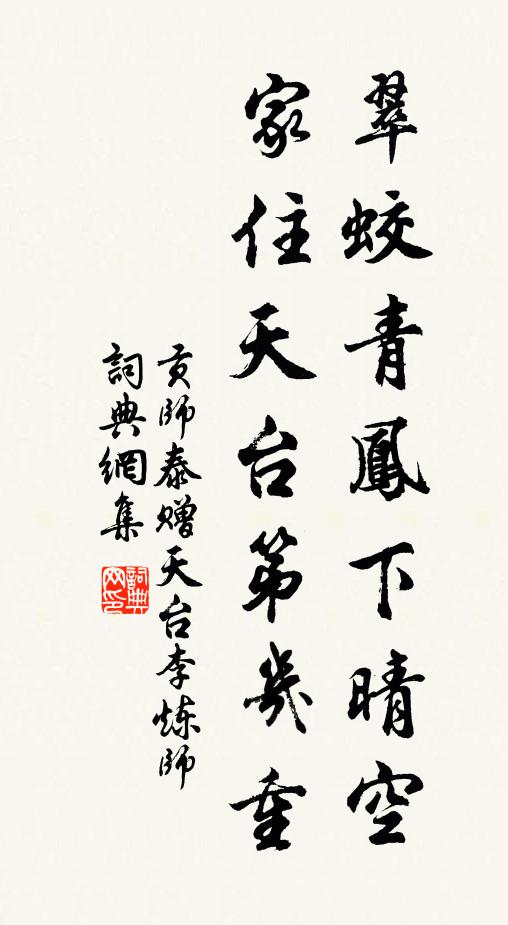 翠蛟青鳳下晴空
家住天台第幾重
貢師泰贈天台李煉師
詞典網集
詞典網印